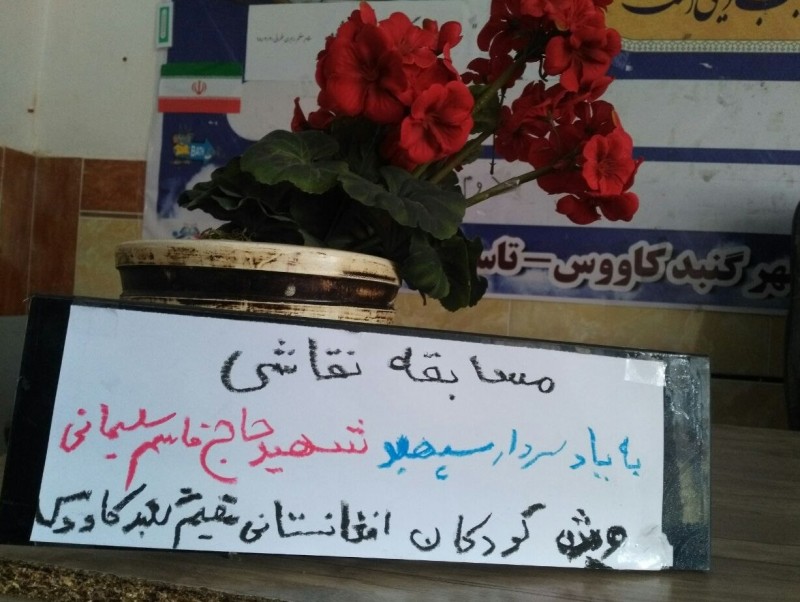 مسابقه نقاشی
به یاد سردار سپهبد شهید حاج قاسم سلیمانی
ویژه کودکان افغانستانی مقیم گنبد کاووس
هر گنبد کاووس - تاس